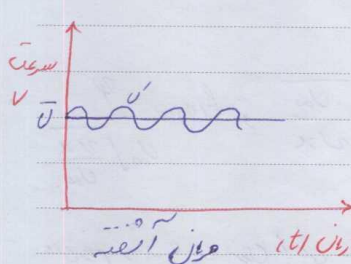 سرعت
V
Ū
U'
زمان (t)
جریان آشفته